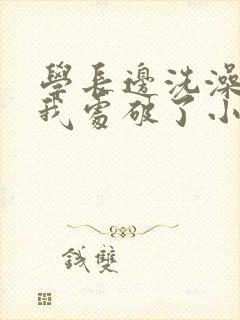 學長邊洗澡
我處破了小
錢雙